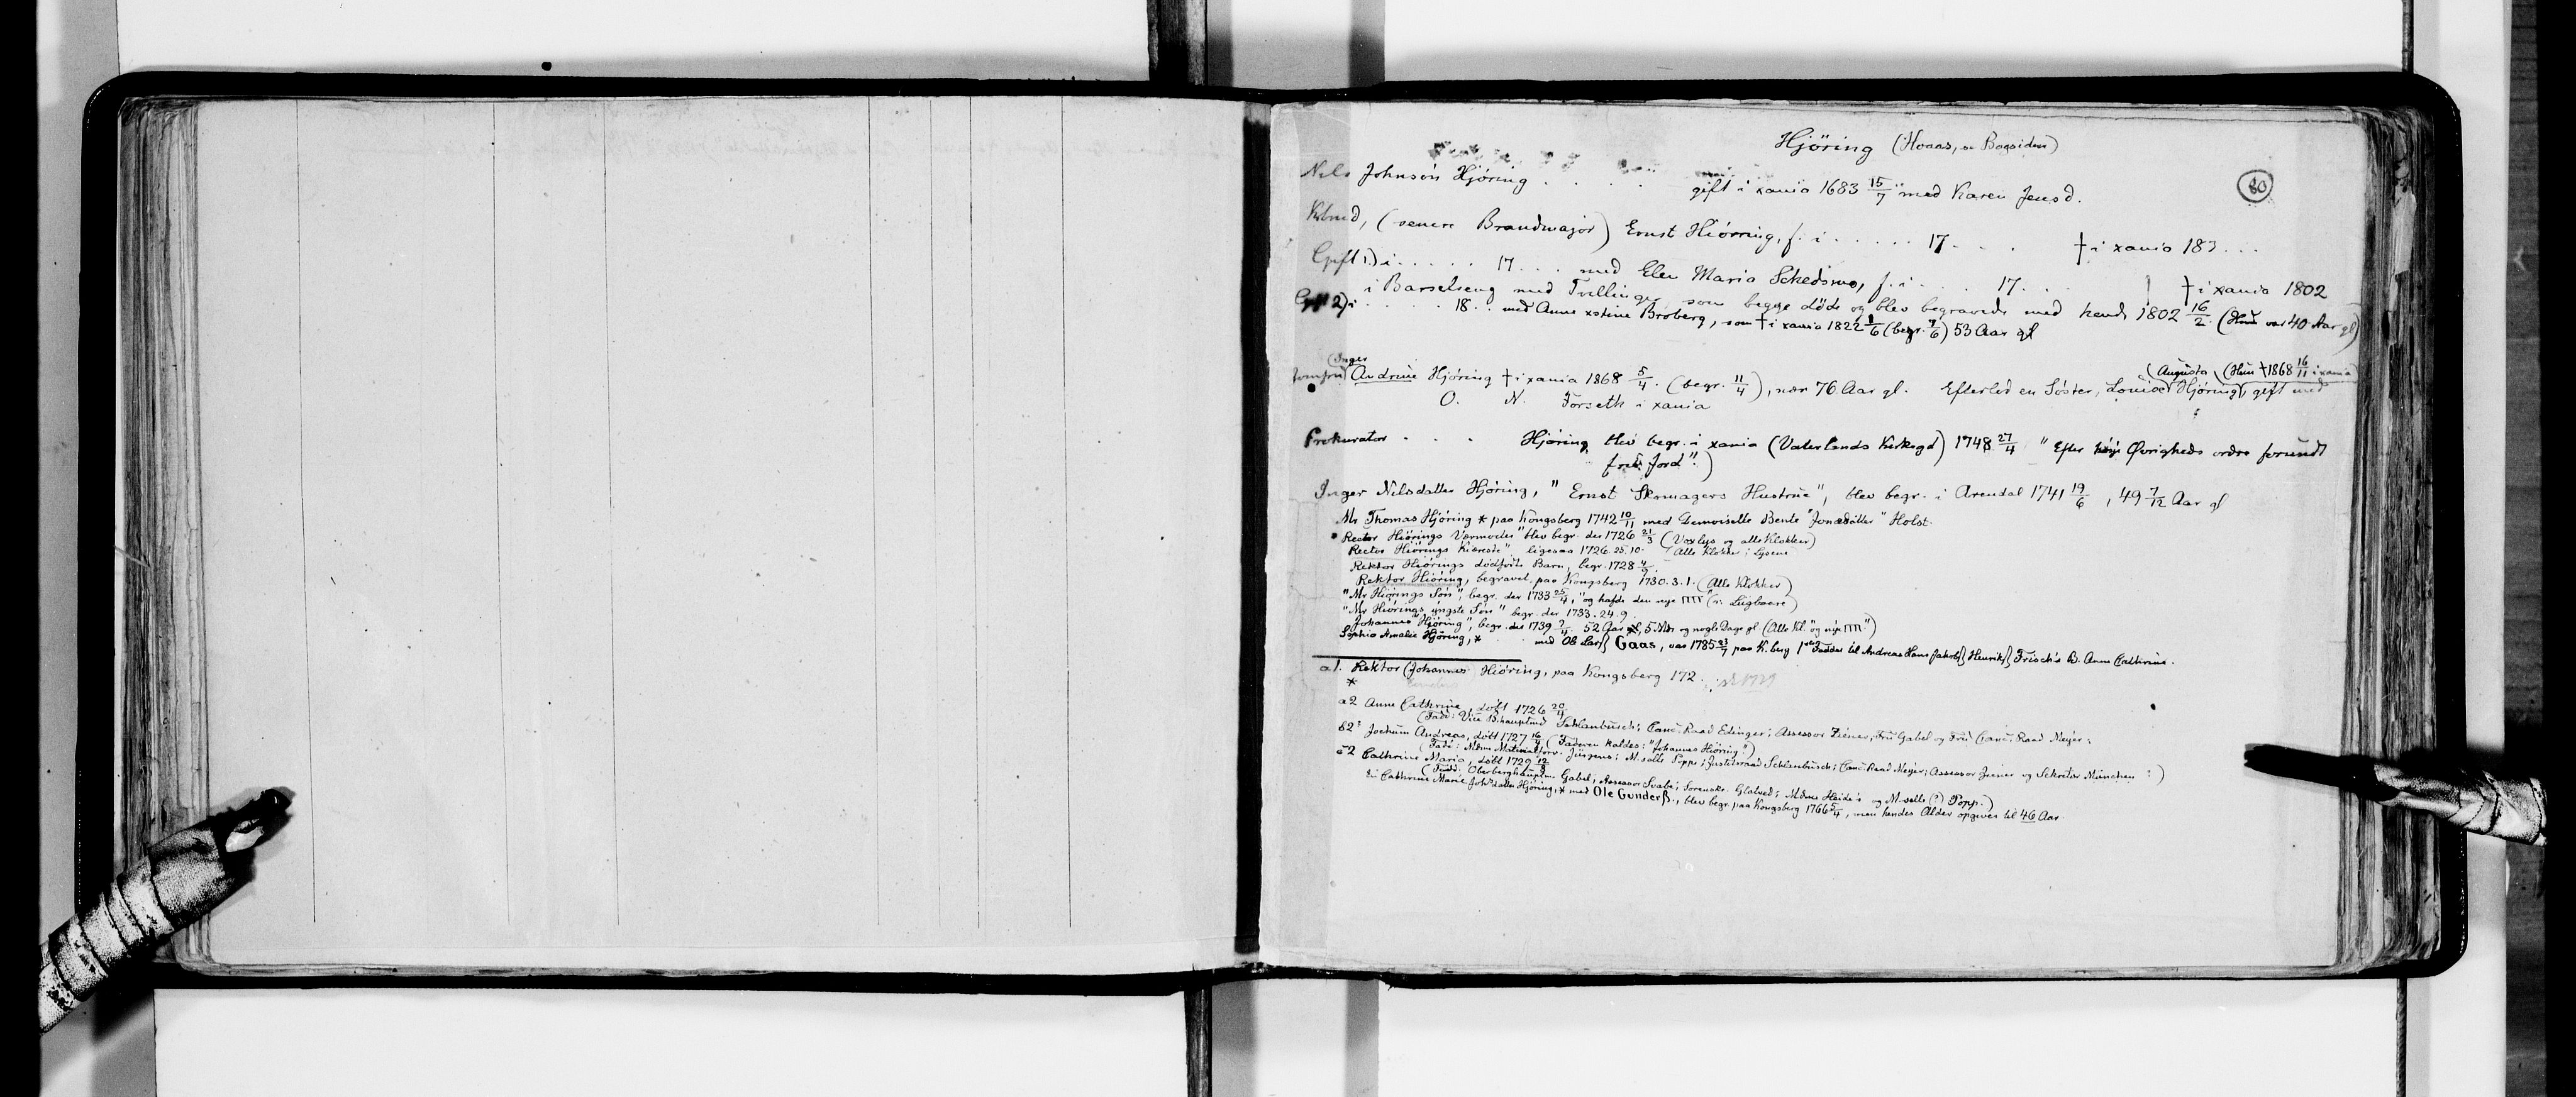 Hjöring (Hoaas, se Bagsiden)
80
Nels Johnsön Hjöring . . . . gift i xania 1683 15/7 med Karen Jensd.
Kbmd, (senere Brandmajor) Ernst Hiörring, f. i . . . . . 17 . . . † i xania 183 . . .
Gift 1) i . . . . . 17 . . . med Elen Maria Schedsmo, f. i . . . . 17 . . . † i xania 1802
i Barselseng med Tvillinger som begge döde og blev begravede med hende 1802 16/2. (Hun var 40 Aar gl)
Gift 2) i . . . . 18 . . med Anne xstine Broberg, som † i xania 1822 1/6 (begr. 7/6) 53 Aar gl
(Inger (Augusta (Hun † 1868 16/11 i xania)
Jomfru Andrine Hjöring † i xania 1868 5/4. (begr. 11/4), nær 76 Aar gl. Efterlod en Söster, Louise Hjöring, gift med
O. N. Forseth i xania
Prokurator . . . Hjöring blev begr. i xania (Vaterlands Kirkegd) 1748 27/4 "Efter höje Øvrigheds ordre forundt
frie Jord".)
Inger Nilsdatter Hjöring, "Ernst Skomagers Hustrue", blev begr. i Arendal 1741 19/6, 49 7/12 Aar gl
Mr Thomas Hjöring * paa Kongsberg 1742 10/11 med Demoiselle Bente "Jonædatter" Holst.
Rector Hiörings Værmoder" blev begr. der 1726 21/3 (Voxlys og alle Klokker)
Rector Hiörings Kiæreste", ligesaa 1726.25.10. (Alle Klokker i Lysene
Rektor Hiörings dödfödte Barn, begr. 1728 4/9.
Rektor Hiöring, begravet paa Kongsberg 1730.3.1. (Alle Klokker)
"Mr Hiörings Sön", begr. der 1733 25/4, "og hafde den nye (ɔ: Liigbaare)
"Mr Hiörings yngste Sön" begr. der 1733.24.9.
Johannes Hjöring", begr. der 1739 7/4. 52 Aar, 5 Mdr og nogle Dage gl (Alle Kl." og nye ")
Sophia Amalie Hjöring, * . . . med Ole Lars Gaas, var 1785 23/7 paa K.berg 1ste Fadder til Andreas Hans Jakob Henrik Frisch's B. Anne Cathrine.
a1. Rektor (Johannes) Hiöring, paa Kongsberg 172 . .
*
a2 Anne Cathrine, döbt 1726 20/4
(Fadd: Vice B.hauptmd Schlanbusch; Canc. Raad Edinger; Assessor Ziener; Fru Gabel og Fru Canc. Raad Meyer.
b2 Jochum Andreas, döbt 1727 16/4 (Faderen kaldes: "Johannes Hiöring")
(Fadd: Mdm Materialforv. Jürgens; M.selle Popp; Justitsraad Schlanbusch; Canc. Raad Meyer; Assessor Ziener og Sekretær München :)
c2 Cathrine Maria, döbt 1729 12/8
(Fadd: Oberberghauptm. Gabel; Assessor Svabe; Sorenskr. Glatved; Mdme Heide's og M.selle (?) Popp.)
En Cathrine Marie Johsdatter Hjöring, * med Ole Gunders., blev begr. paa Kongsberg 1766 5/4, men hendes Alder opgives til 46 Aar.